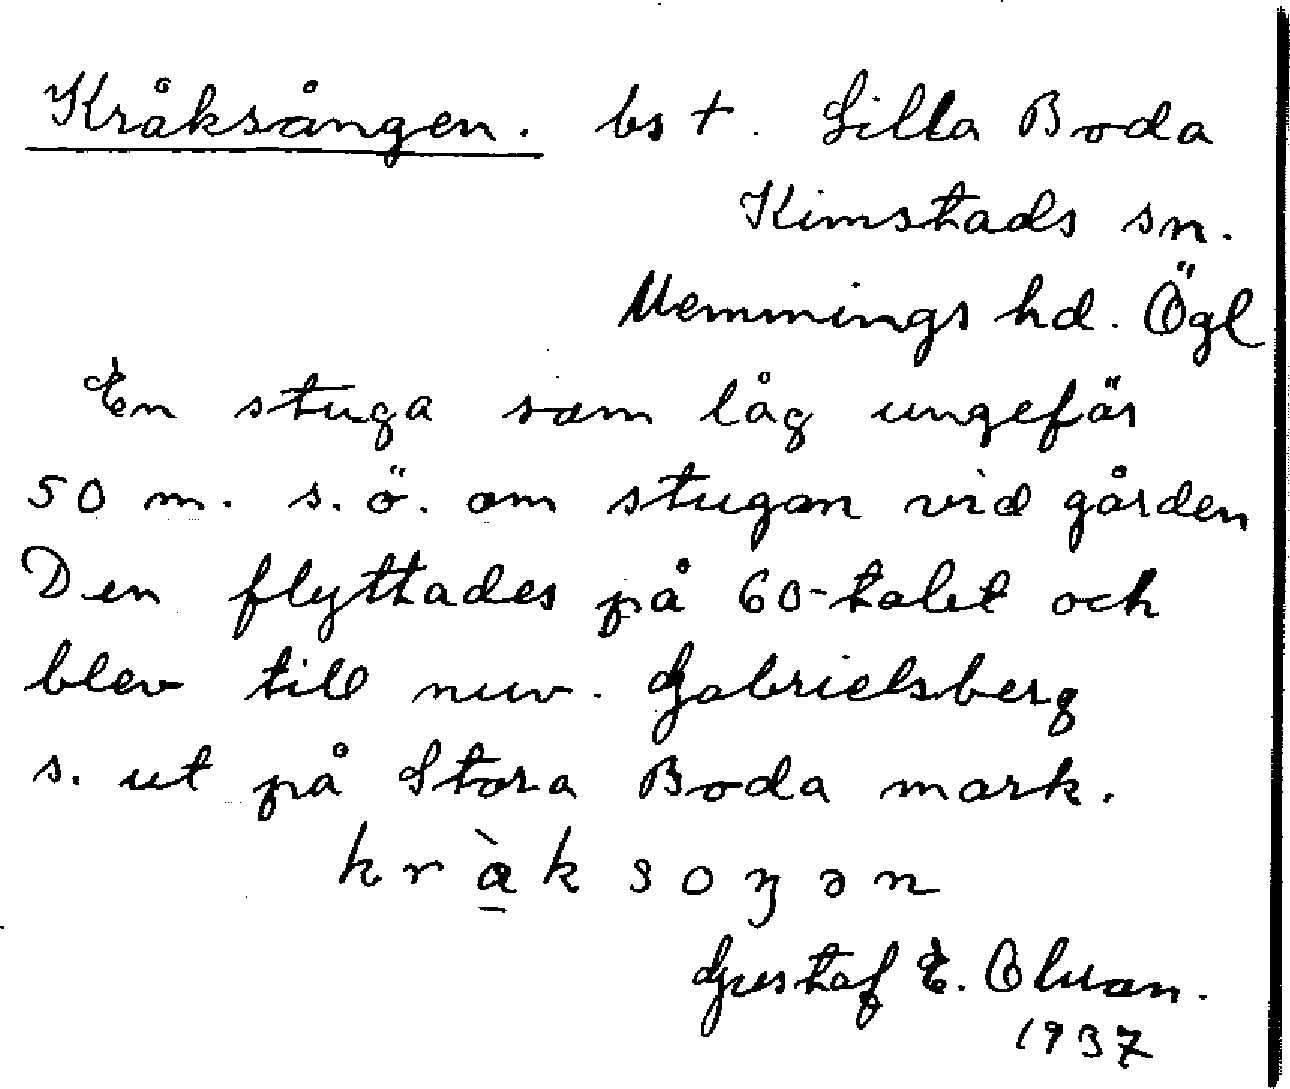 Kråksången. bst. Lilla Boda
Kimstads sn.
Memmings hd. Ögl
En stuga som låg ungefär
50 m. s.ö. om stugan vid gården
Den flyttades på 60-talet och
blev till nuv. Gabrielsberg
s. ut på Stora Boda mark.
Gustaf E.
1937